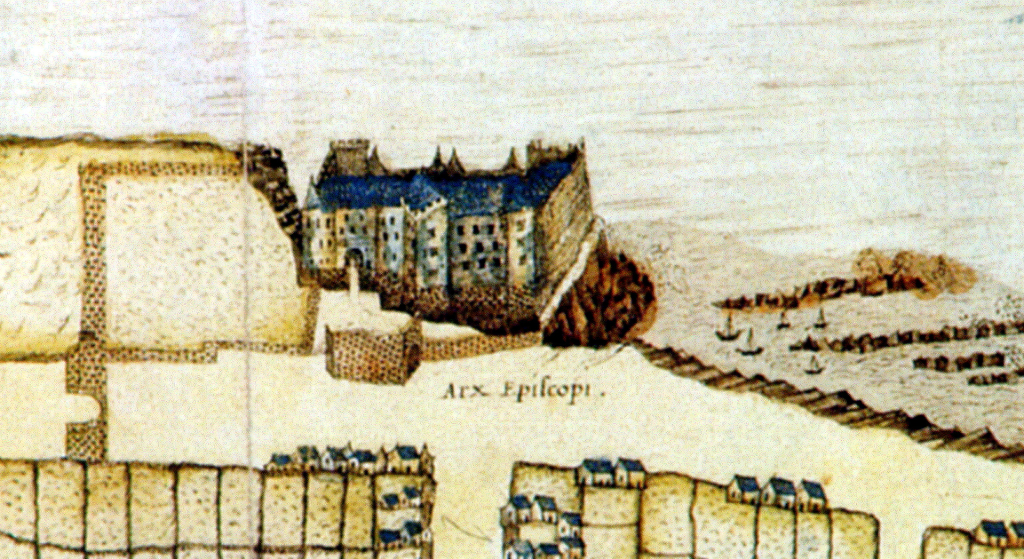 Arx Episcopi .